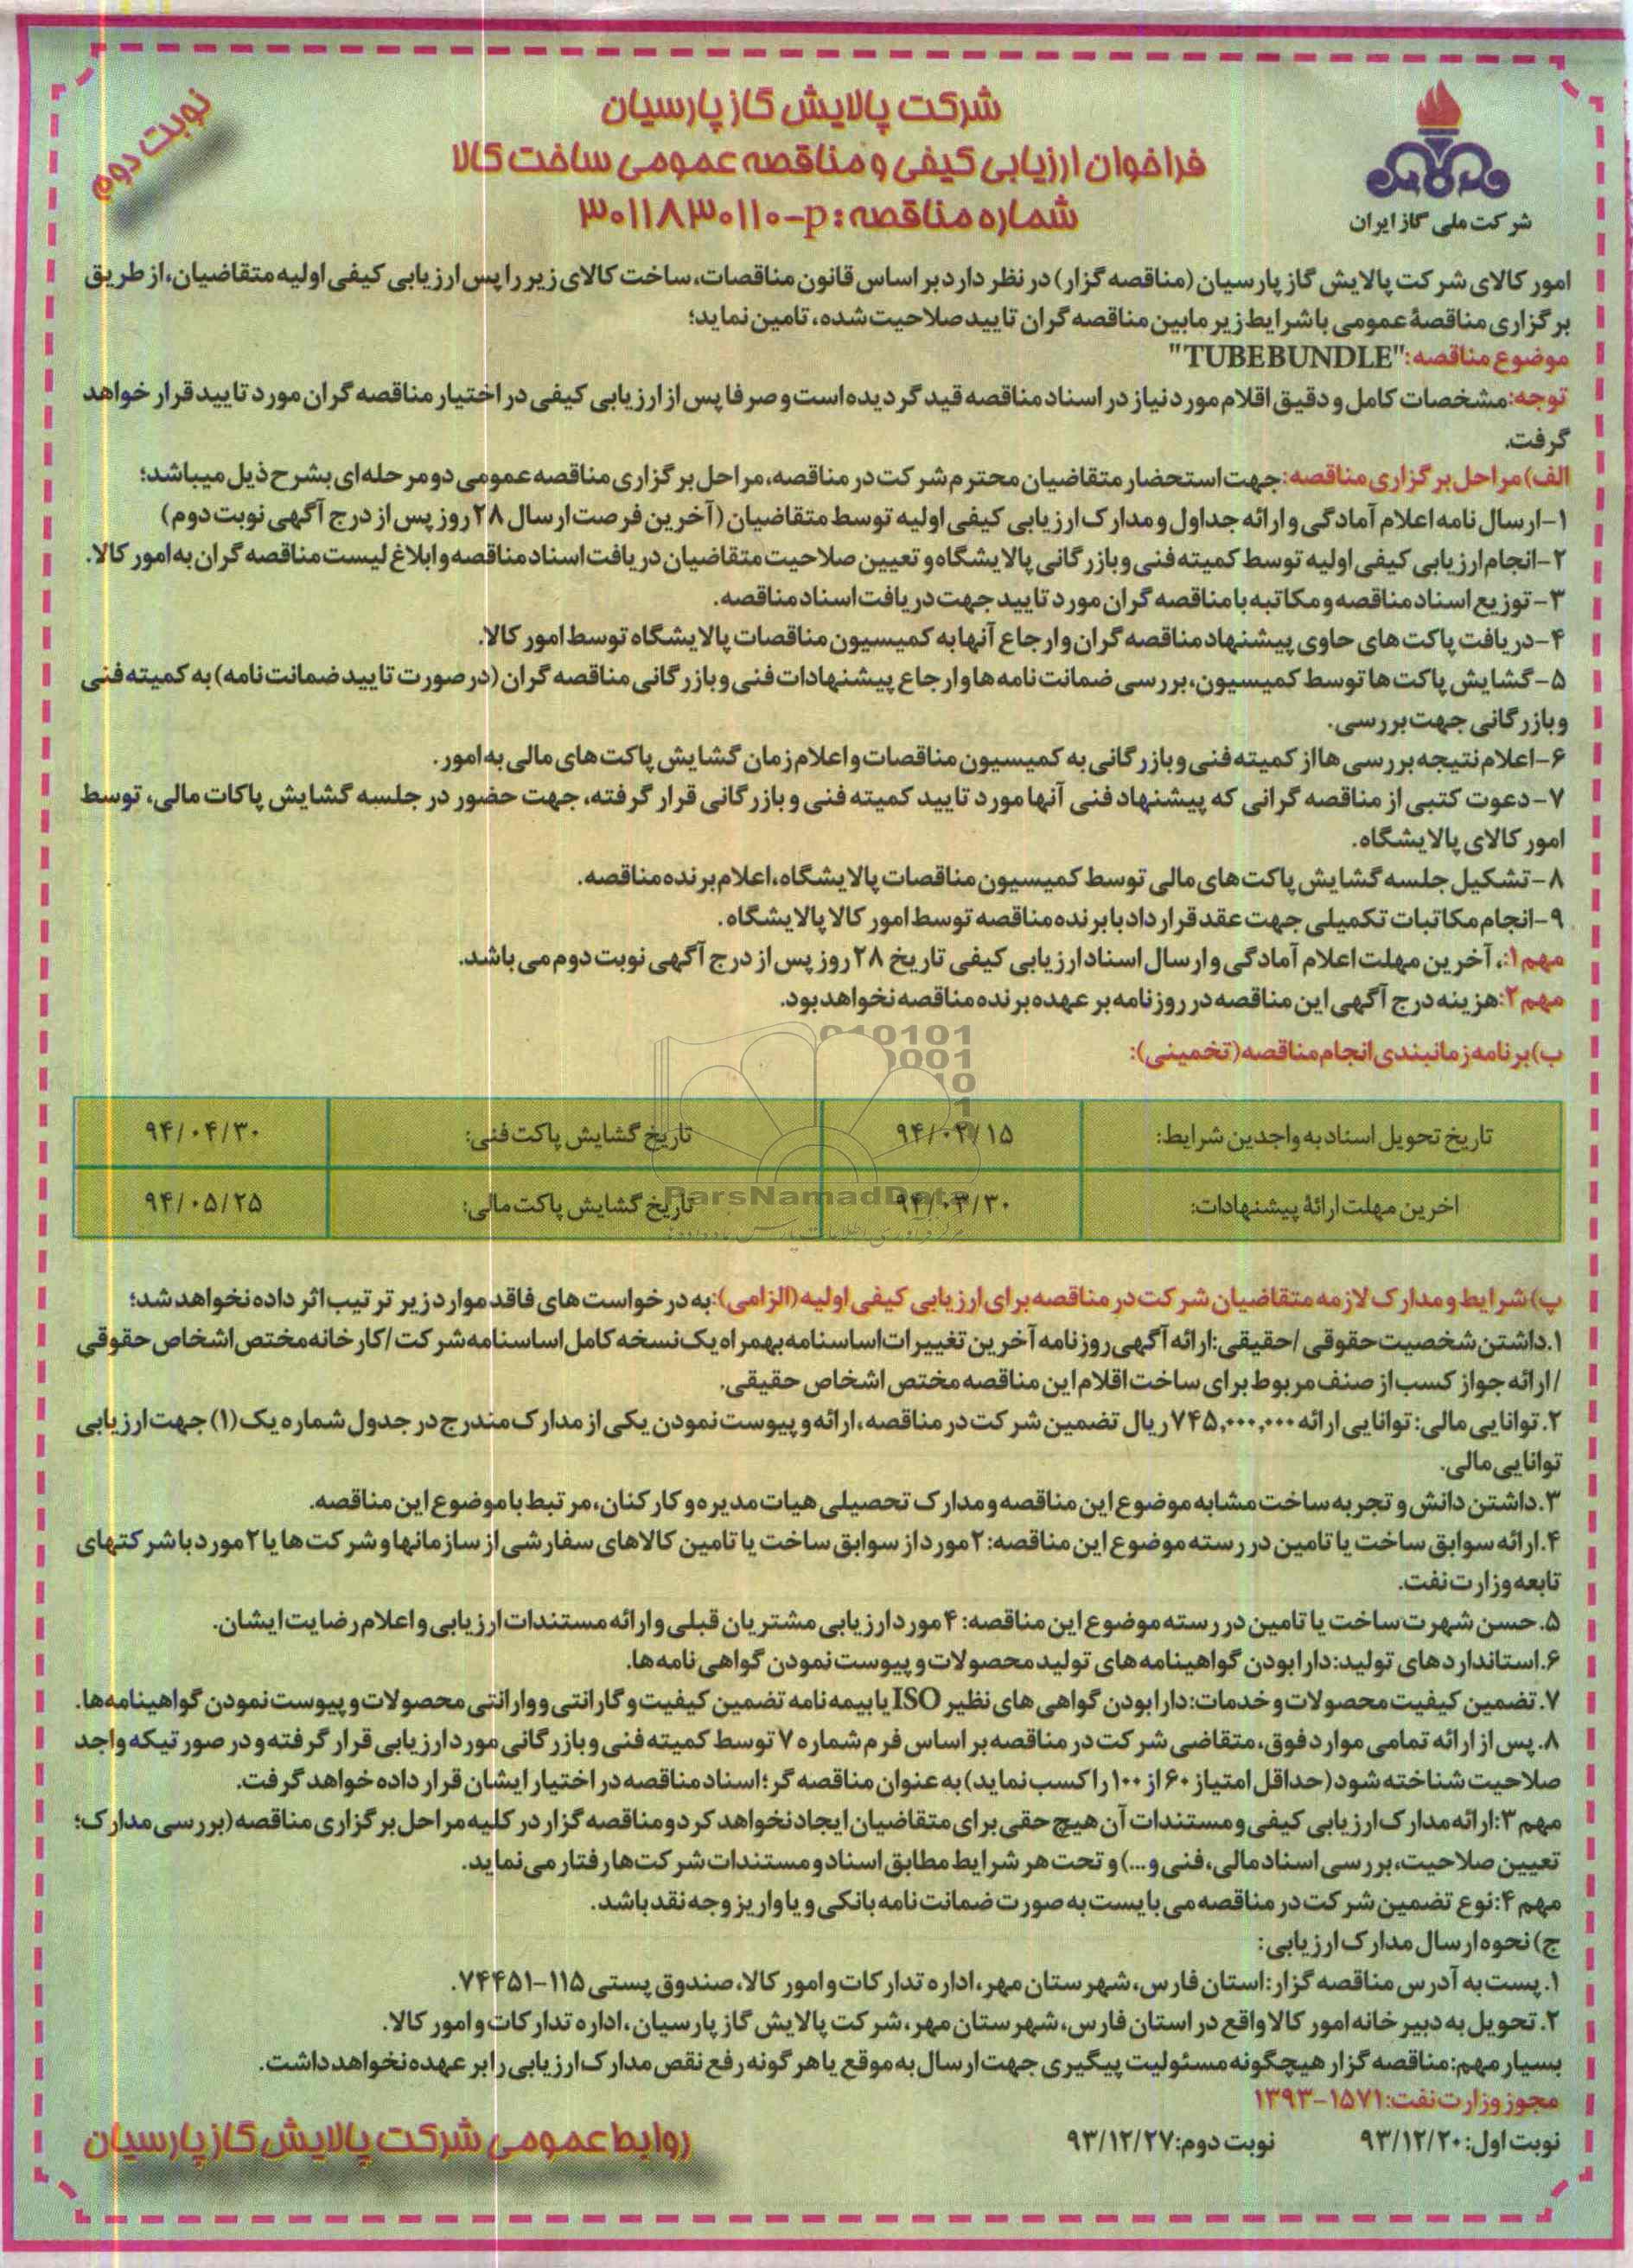 نوبت دوم
شرکت پالایش گاز پارسیان
فراخوان ارزیابی کیفی و مناقصه عمومی ساخت کالا
شماره مناقصه: p-۳۰۱۱۸۳۰۱۱۰
شرکت ملی گاز ایران
امور کالای شرکت پالایش گاز پارسیان (مناقصه گزار) در نظر دارد بر اساس قانون مناقصات، ساخت کالای زیر را پس ارزیابی کیفی اولیه متقاضیان، از طریق
برگزاری مناقصۀ عمومی با شرایط زیر مابین مناقصه گران تایید صلاحیت شده، تامین نماید؛
موضوع مناقصه: "TUBE BUNDLE"
توجه: مشخصات کامل و دقیق اقلام مورد نیاز در اسناد مناقصه قید گردیده است و صرفا پس از ارزیابی کیفی در اختیار مناقصه گران مورد تایید قرار خواهد
گرفت.
الف) مراحل برگزاری مناقصه: جهت استحضار متقاضیان محترم شرکت در مناقصه، مراحل برگزاری مناقصه عمومی دو مرحله‌ای بشرح ذیل میباشد؛
۱- ارسال نامه اعلام آمادگی و ارائه جداول و مدارک ارزیابی کیفی اولیه توسط متقاضیان (آخرین فرصت ارسال ۲۸ روز پس از درج آگهی نوبت دوم)
۲- انجام ارزیابی کیفی اولیه توسط کمیته فنی و بازرگانی پالایشگاه و تعیین صلاحیت متقاضیان دریافت اسناد مناقصه و ابلاغ لیست مناقصه گران به امور کالا.
۳- توزیع اسناد مناقصه و مکاتبه با مناقصه گران مورد تایید جهت دریافت اسناد مناقصه.
۴- دریافت پاکت های حاوی پیشنهاد مناقصه گران و ارجاع آنها به کمیسیون مناقصات پالایشگاه توسط امور کالا.
۵- گشایش پاکت ها توسط کمیسیون، بررسی ضمانت نامه ها و ارجاع پیشنهادات فنی و بازرگانی مناقصه گران (در صورت تایید ضمانت نامه) به کمیته فنی
و بازرگانی جهت بررسی.
۶- اعلام نتیجه بررسی ها از کمیته فنی و بازرگانی به کمیسیون مناقصات و اعلام زمان گشایش پاکت های مالی به امور.
۷- دعوت کتبی از مناقصه گرانی که پیشنهاد فنی آنها مورد تایید کمیته فنی و بازرگانی قرار گرفته، جهت حضور در جلسه گشایش پاکات مالی، توسط
امور کالای پالایشگاه.
۸- تشکیل جلسه گشایش پاکت های مالی توسط کمیسیون مناقصات پالایشگاه، اعلام برنده مناقصه.
۹- انجام مکاتبات تکمیلی جهت عقد قرارداد با برنده مناقصه توسط امور کالا پالایشگاه.
مهم ۱:، آخرین مهلت اعلام آمادگی و ارسال اسناد ارزیابی کیفی تاریخ ۲۸ روز پس از درج آگهی نوبت دوم می باشد.
مهم ۲: هزینه درج آگهی این مناقصه در روزنامه بر عهده برنده مناقصه نخواهد بود.
ب) برنامه زمانبندی انجام مناقصه (تخمینی):
تاریخ تحویل اسناد به واجدین شرایط: ۹۴/۰۲/۱۵ تاریخ گشایش پاکت فنی: ۹۴/۰۴/۳۰
اخرین مهلت ارائۀ پیشنهادات: ۹۴/۰۳/۳۰ تاریخ گشایش پاکت مالی: ۹۴/۰۵/۲۵
ParsNamadData
پ) شرایط و مدارک لازمه متقاضیان شرکت در مناقصه برای ارزیابی کیفی اولیه (الزامی): به درخواست های فاقد موارد زیر ترتیب اثر داده نخواهد شد؛
۱. داشتن شخصیت حقوقی / حقیقی: ارائه آگهی روزنامه آخرین تغییرات اساسنامه بهمراه یک نسخه کامل اساسنامه شرکت / کارخانه مختص اشخاص حقوقی
/ ارائه جواز کسب از صنف مربوط برای ساخت اقلام این مناقصه مختص اشخاص حقیقی.
۲. توانایی مالی: توانایی ارائه ۷۴۵,۰۰۰,۰۰۰ ریال تضمین شرکت در مناقصه، ارائه و پیوست نمودن یکی از مدارک مندرج در جدول شماره یک (۱) جهت ارزیابی
توانایی مالی.
۳. داشتن دانش و تجربه ساخت مشابه موضوع این مناقصه و مدارک تحصیلی هیات مدیره و کارکنان، مرتبط با موضوع این مناقصه.
۴. ارائه سوابق ساخت یا تامین در رسته موضوع این مناقصه: ۲ مورد از سوابق ساخت یا تامین کالاهای سفارشی از سازمانها و شرکت ها یا ۲ مورد با شرکتهای
تابعه وزارت نفت.
۵. حسن شهرت ساخت یا تامین در رسته موضوع این مناقصه: ۴ مورد ارزیابی مشتریان قبلی و ارائه مستندات ارزیابی و اعلام رضایت ایشان.
۶. استانداردهای تولید: دارا بودن گواهینامه های تولید محصولات و پیوست نمودن گواهی نامه ها.
۷. تضمین کیفیت محصولات و خدمات: دارا بودن گواهی های نظیر ISO یا بیمه نامه تضمین کیفیت و گارانتی و وارانتی محصولات و پیوست نمودن گواهینامه ها.
۸. پس از ارائه تمامی موارد فوق، متقاضی شرکت در مناقصه بر اساس فرم شماره ۷ توسط کمیته فنی و بازرگانی مورد ارزیابی قرار گرفته و در صورتیکه واجد
صلاحیت شناخته شود (حداقل امتیاز ۶۰ از ۱۰۰ را کسب نماید) به عنوان مناقصه گر؛ اسناد مناقصه در اختیار ایشان قرار داده خواهد گرفت.
مهم ۳: ارائه مدارک ارزیابی کیفی و مستندات آن هیچ حقی برای متقاضیان ایجاد نخواهد کرد و مناقصه گزار در کلیه مراحل برگزاری مناقصه (بررسی مدارک؛
تعیین صلاحیت، بررسی اسناد مالی، فنی و ...) و تحت هر شرایط مطابق اسناد و مستندات شرکت ها رفتار می نماید.
مهم ۴: نوع تضمین شرکت در مناقصه می بایست به صورت ضمانت نامه بانکی و یا واریز وجه نقد باشد.
ج) نحوه ارسال مدارک ارزیابی:
۱. پست به آدرس مناقصه گزار: استان فارس، شهرستان مهر، اداره تدارکات و امور کالا، صندوق پستی ۱۱۵-۷۴۴۵۱.
۲. تحویل به دبیرخانه امور کالا واقع در استان فارس، شهرستان مهر، شرکت پالایش گاز پارسیان، اداره تدارکات و امور کالا.
بسیار مهم: مناقصه گزار هیچگونه مسئولیت پیگیری جهت ارسال به موقع یا هر گونه رفع نقص مدارک ارزیابی را بر عهده نخواهد داشت.
مجوز وزارت نفت: ۱۵۷۱-۱۳۹۳
نوبت اول: ۹۳/۱۲/۲۰ نوبت دوم: ۹۳/۱۲/۲۷
روابط عمومی شرکت پالایش گاز پارسیان